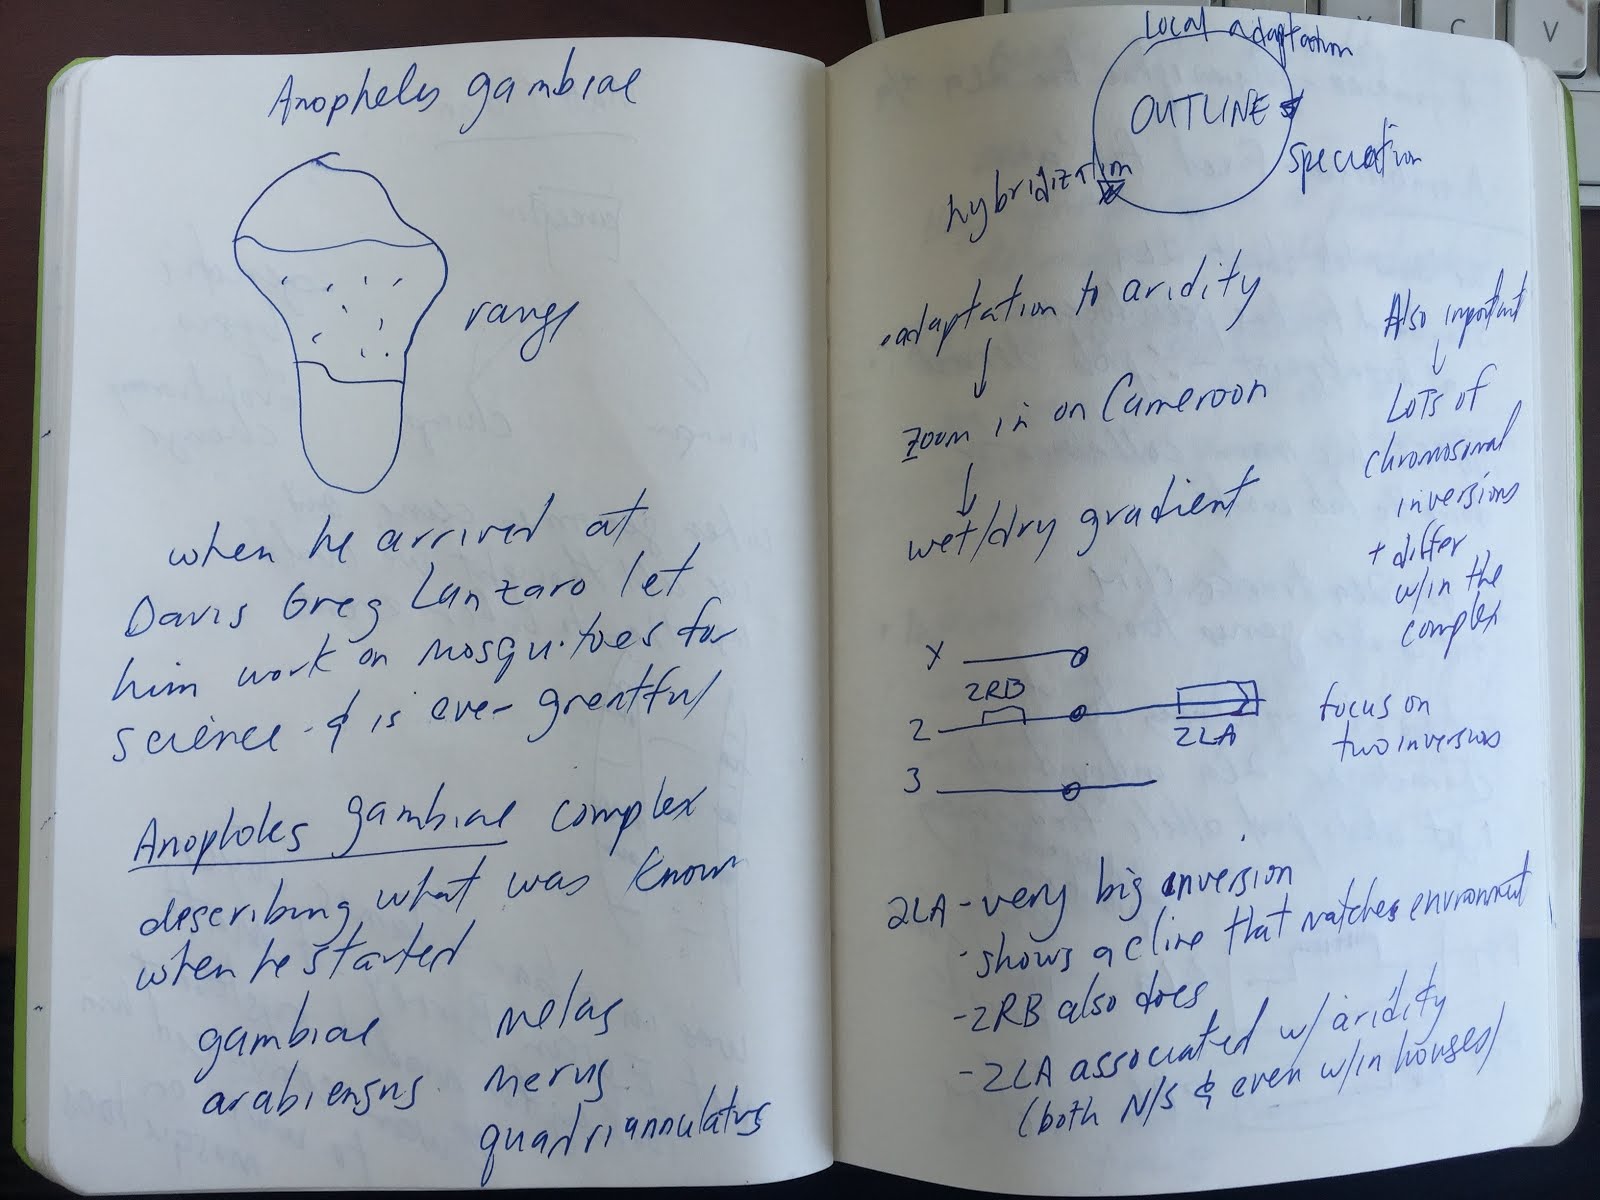 Anopheles gambiae
range
when he arrived at
Davis Greg Lanzaro let
him work on mosquitoes for
science & is ever greatful
Anopholes gambiae complex
describing what was known
when he started
gambiae melas
arabiensus merus
quadriannulatus
Local adaptation
OUTLINE
speciation
hybridization
• adaptation to aridity
↓
zoom in on Cameroon
↓
wet/dry gradient
Also important
↓
LoTs of
chromosomal
inversions
+ differ
w/in the
complex
X
2RB
2
2LA
3
focus on
two inversions
2LA - very big inversion
· shows a cline that matches environment
- 2RB also does
- 2LA associated w/ aridity
(both N/S & even w/in houses)
V